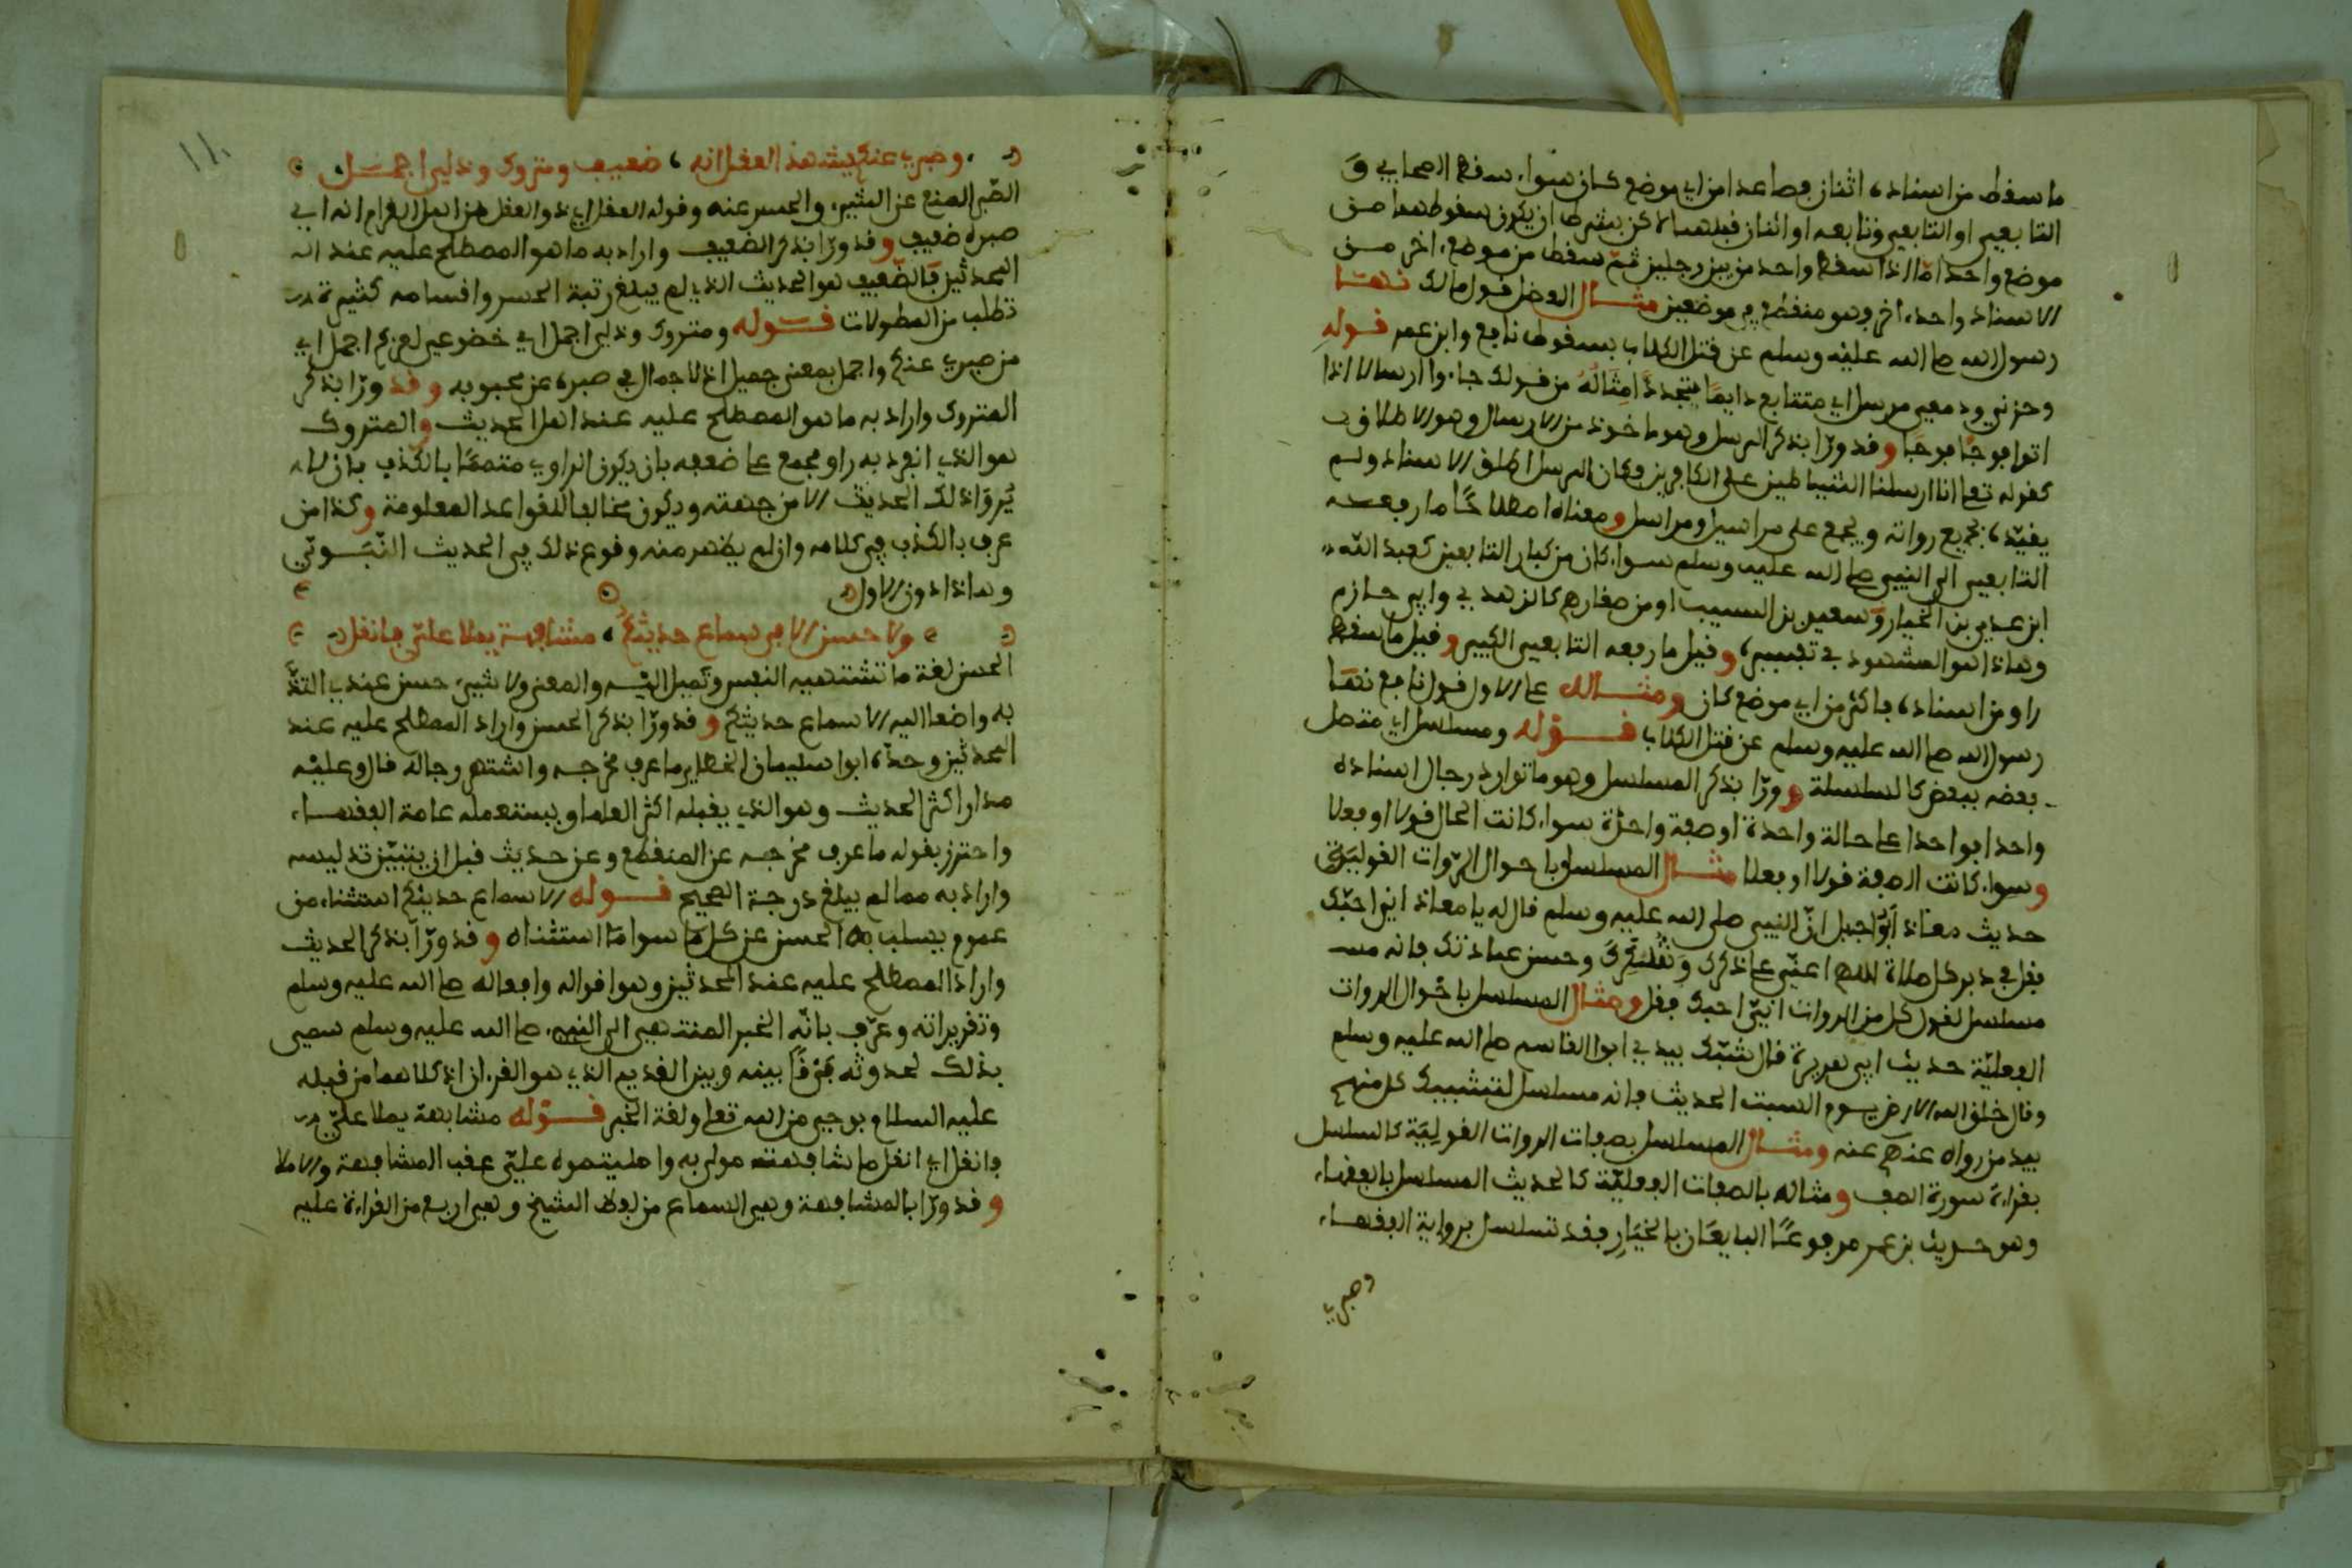 ما سقط من اسناده اثنان فصاعدا من اي موضع كان سواء سقط الصحابي و
التابعي او التابعي وتابعه او اثنان قبلهما لاكن بشرط ان يكون سقوطهما من
موضع واحد اما اذا سقط واحد من بين رجلين ثم سقط من موضع اخر من
الاسناد واحد اخر فهو منقطع في موضعين مثال المعضل قول مالك نهى
رسول الله صلى الله عليه وسلم عن قتل الكلاب بسقوط نافع وابن عمر قوله
وحزني ودمعي مرسل اي متتابع دايما يتجدد امثاله من قولك جاءوا ارسالا اذا
اتوا فوجا فوجا وقد ورا بذكر المرسل وهو ماخوذ من الارسال وهو الاطلاق
كقوله تعا انا ارسلنا الشياطين على الكافرين فكان المرسل اطلق الاسناد ولم
يقيده بجميع رواته ويجمع على مراسيل ومراسل ومعناه اصطلاحا ما رفعه
التابعي الى النبي صلى الله عليه وسلم سواء كان من كبار التابعين كعبد الله
ابن عدي بن الخيار وسعيد بن المسيب او من صغارهم كالزهدي وابي حازم
وهاذا هو المشهور في تفسيره وقيل ما رفعه التابعي الكبير وقيل ما سقط
راو من اسناده فاكثر من اي موضع كان ومثاله على الاول قول نافع نهى
رسول الله صلى الله عليه وسلم عن قتل الكلاب قوله ومسلسل اي متصل
بعضه ببعض كالسلسلة وورا بذكر المسلسل وهو ما توارد رجال اسناده
واحدا فواحدا على حالة واحدة او صفة واحدة سواء كانت الحال قولا او فعلا
وسواء كانت الصفة قولا او فعلا مثال المسلسل باحوال الروات القولية
حديث معاذ ابن جبل ان النبي صلى الله عليه وسلم قال له يا معاذ اني احبك
فقل في دبر كل صلاة اللهم اعني على ذكرك وشكرك وحسن عبادتك فانه مسـ
مسلسل لقول كل من الروات اني احبك فقل ومثال المسلسل باحوال الروات
الفعلية حديث ابي هريرة قال شبك بيدي ابوا القاسم صلى الله عليه وسلم
وقال خلق الله الارض يوم السبت الحديث فانه مسلسل لتشبيك كل منهم
بيد من رواه عنهم عنه ومثال المسلسل بصفات الروات القولية كالمسلسل
بقراءة سورة الصف ومثاله بالصفات الفعلية كالحديث المسلسل بالفقهاء
وهو حديث بن عمر مرفوعا البايعان بالخيار فقد تسلسل برواية الفقهاء
وصبري
١١
وصبري عنكم يشهد العقل انه ، ضعيف ومتروك وذلي اجمل
الصبر المنع عن الشيء والحسر عنه وقوله العقل اي ذو العقل من اهل الغرام انه اي
صبره ضعيف وقد ورا بذكر الضعيف واراد به ما هو المصطلح عليه عند الـ
المحدثين فالضعيف هو الحديث الذي لم يبلغ رتبة الحسن واقسامه كثيرة
تطلب من المطولات قوله ومتروك وذلي اجمل اي خضوعي لعزكم اجمل اي
من صبري عنكم واجمل بمعنى جميل اذ لا جمال في صبره عن محبوبه وقد ورا بذكر
المتروك واراد به ما هو المصطلح عليه عند اهل الحديث والمتروك
هو الذي انفرد به راو مجمع على ضعفه بان يكون الراوي متهما بالكذب بان لا
يروا ذلك الحديث الا من جهته ويكون مخالفا للقواعد المعلومة وكذا من
عرف بالكذب في كلامه وان لم يظهر منه وقوع ذلك في الحديث النبوي
وهاذا دون الاول
ولا حسن الا في سماع حديثكم ، مشافهة يملا علي فانقل
الحسن لغة ما تشتهيه النفس وتميل اليه والمعنى ولا شيء حسن عندي التذ
به واضعا اليه الا سماع حديثكم وقد ورا بذكر الحسن واراد المصطلح عليه عند
المحدثين وحده ابوا سليمان الخطابي ما عرف مخرجه واشتهر رجاله قال وعليه
مدار اكثر الحديث وهو الذي يقبله اكثر العلما ويستعمله عامة الفقهاء
واحترز بقوله ما عرف مخرجه عن المنقطع وعن حديث قبل ان يتبين تدليسه
واراد به مما لم يبلغ درجة الصحيح قوله الا سماع حديثكم استثناء من
عموم بسلب الحسن عن كل ما سوا ما استثناه وقد ورا بذكر الحديث
واراد المصطلح عليه عند المحدثين وهو اقواله وافعاله صلى الله عليه وسلم
وتقريراته وعرف بانه الخبر المنتهي الى النبي صلى الله عليه وسلم سمي
بذلك لحدوثه فرقا بينه وبين القديم الذي هو القرءان اذ كلاهما من قبله
عليه السلام بوحي من الله تعلى ولغة الخبر قوله مشافهة يملا علي
فانقل اي انقل ما شافهته مولى به وامليتموه علي عقب المشافهة والاملا
وقد ورا بالمشافهة وهي السماع من لفظ الشيخ وهي ارفع من القراءة عليه